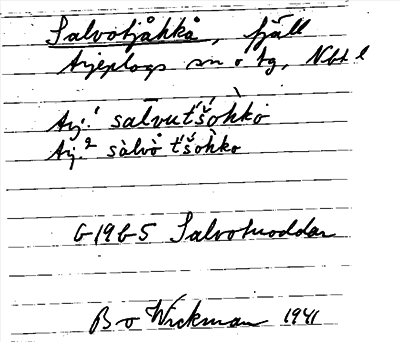 Salvotjåhkå, fjäll
Arjeplogs sn o tg, Nbt l
Arj.¹ salvut'šòhko
Arj.² sàlvò t'šòhko
G 19 G 5 Salvotuoddar
Bo Wickman 1941